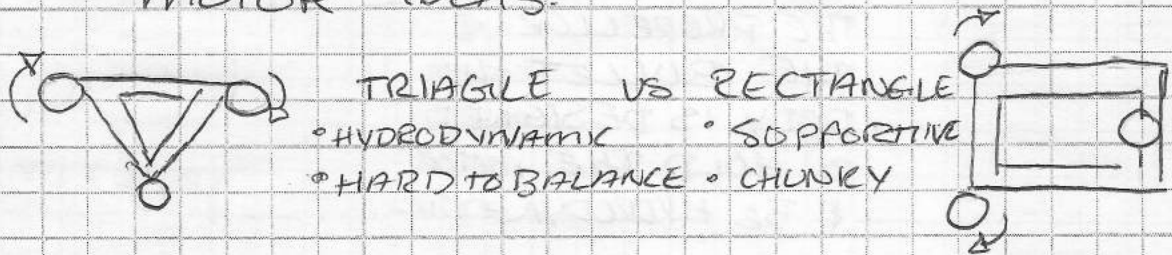 MOTOR IDEAS:
TRIAGILE VS RECTANGLE
• HYDRODYNAMIC • SUPPORTIVE
• HARD TO BALANCE • CHUNKY